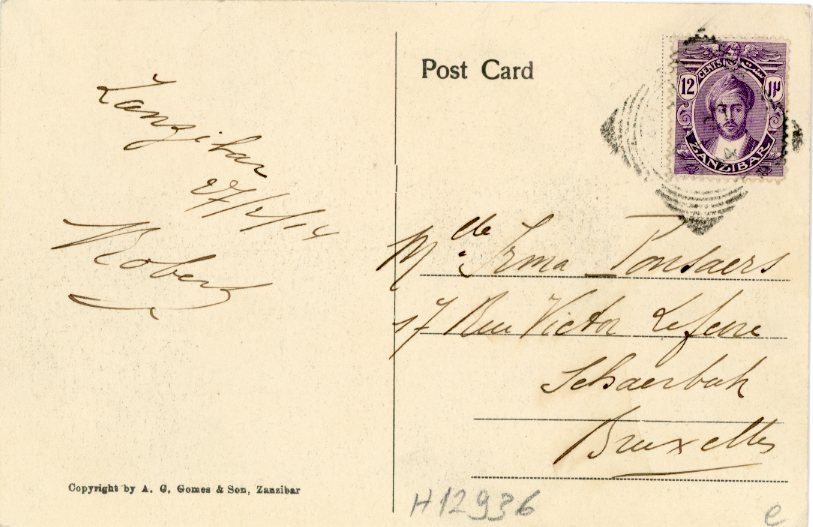 Post Card
12 CENTS ١٢
ZANZIBAR
Zanzibar
27/1/14
Robert
Mlle Irma Ponsaers
17 Rue Victor Lefevre
Schaerbeek
Bruxelles
Copyright by A. C. Gomes & Son, Zanzibar
H12936
e